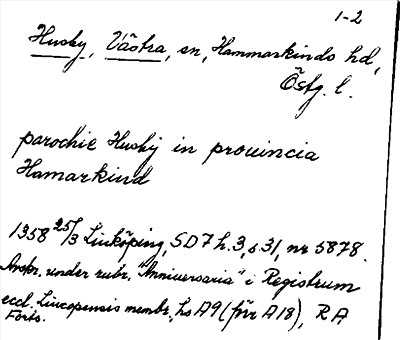 1-2
Husby, Västra, sn, Hammarkinds hd,
Östg. l.
parochie Husby in prouincia
Hamarkind
1358 25/3 Linköping, SD 7 h. 3, s 31, nr 5878.
Avskr. under rubr. "Anniversaria" i Registrum
eccl. Lincopensis membr., hs A9 (förr A 18), RA
Forts.